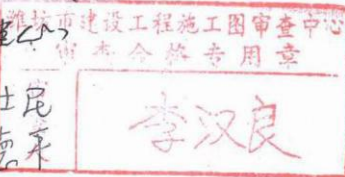 潍坊市建设工程施工图审查中心
审查合格专用章
李汉良